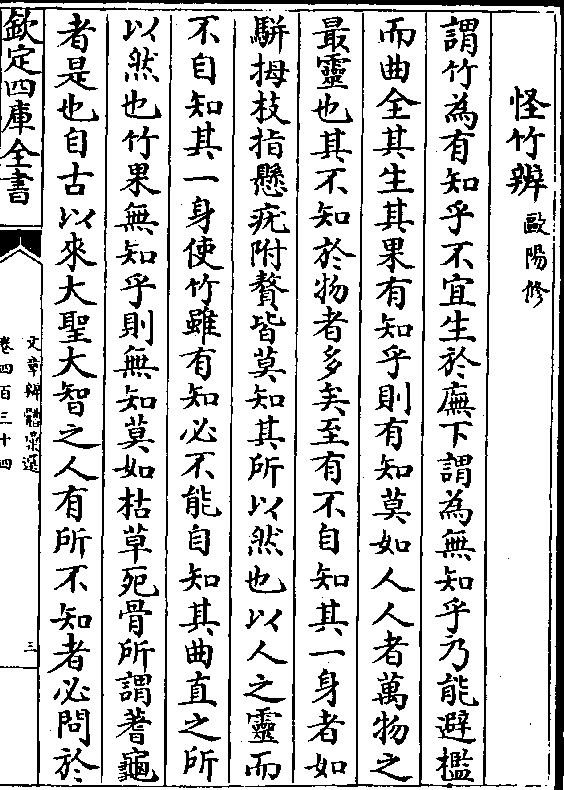 怪竹辨歐陽修
謂竹為有知乎不宜生於廡下謂為無知乎乃能避檻
而曲全其生其果有知乎則有知莫如人人者萬物之
最靈也其不知於物者多矣至有不自知其一身者如
駢拇枝指懸疣附贅皆莫知其所以然也以人之靈而
不自知其一身使竹雖有知必不能自知其曲直之所
以然也竹果無知乎則無知莫如枯草死骨所謂蓍龜
者是也自古以來大聖大智之人有所不知者必問於
欽定四庫全書
文章辨體彙選
卷四百三十四
三